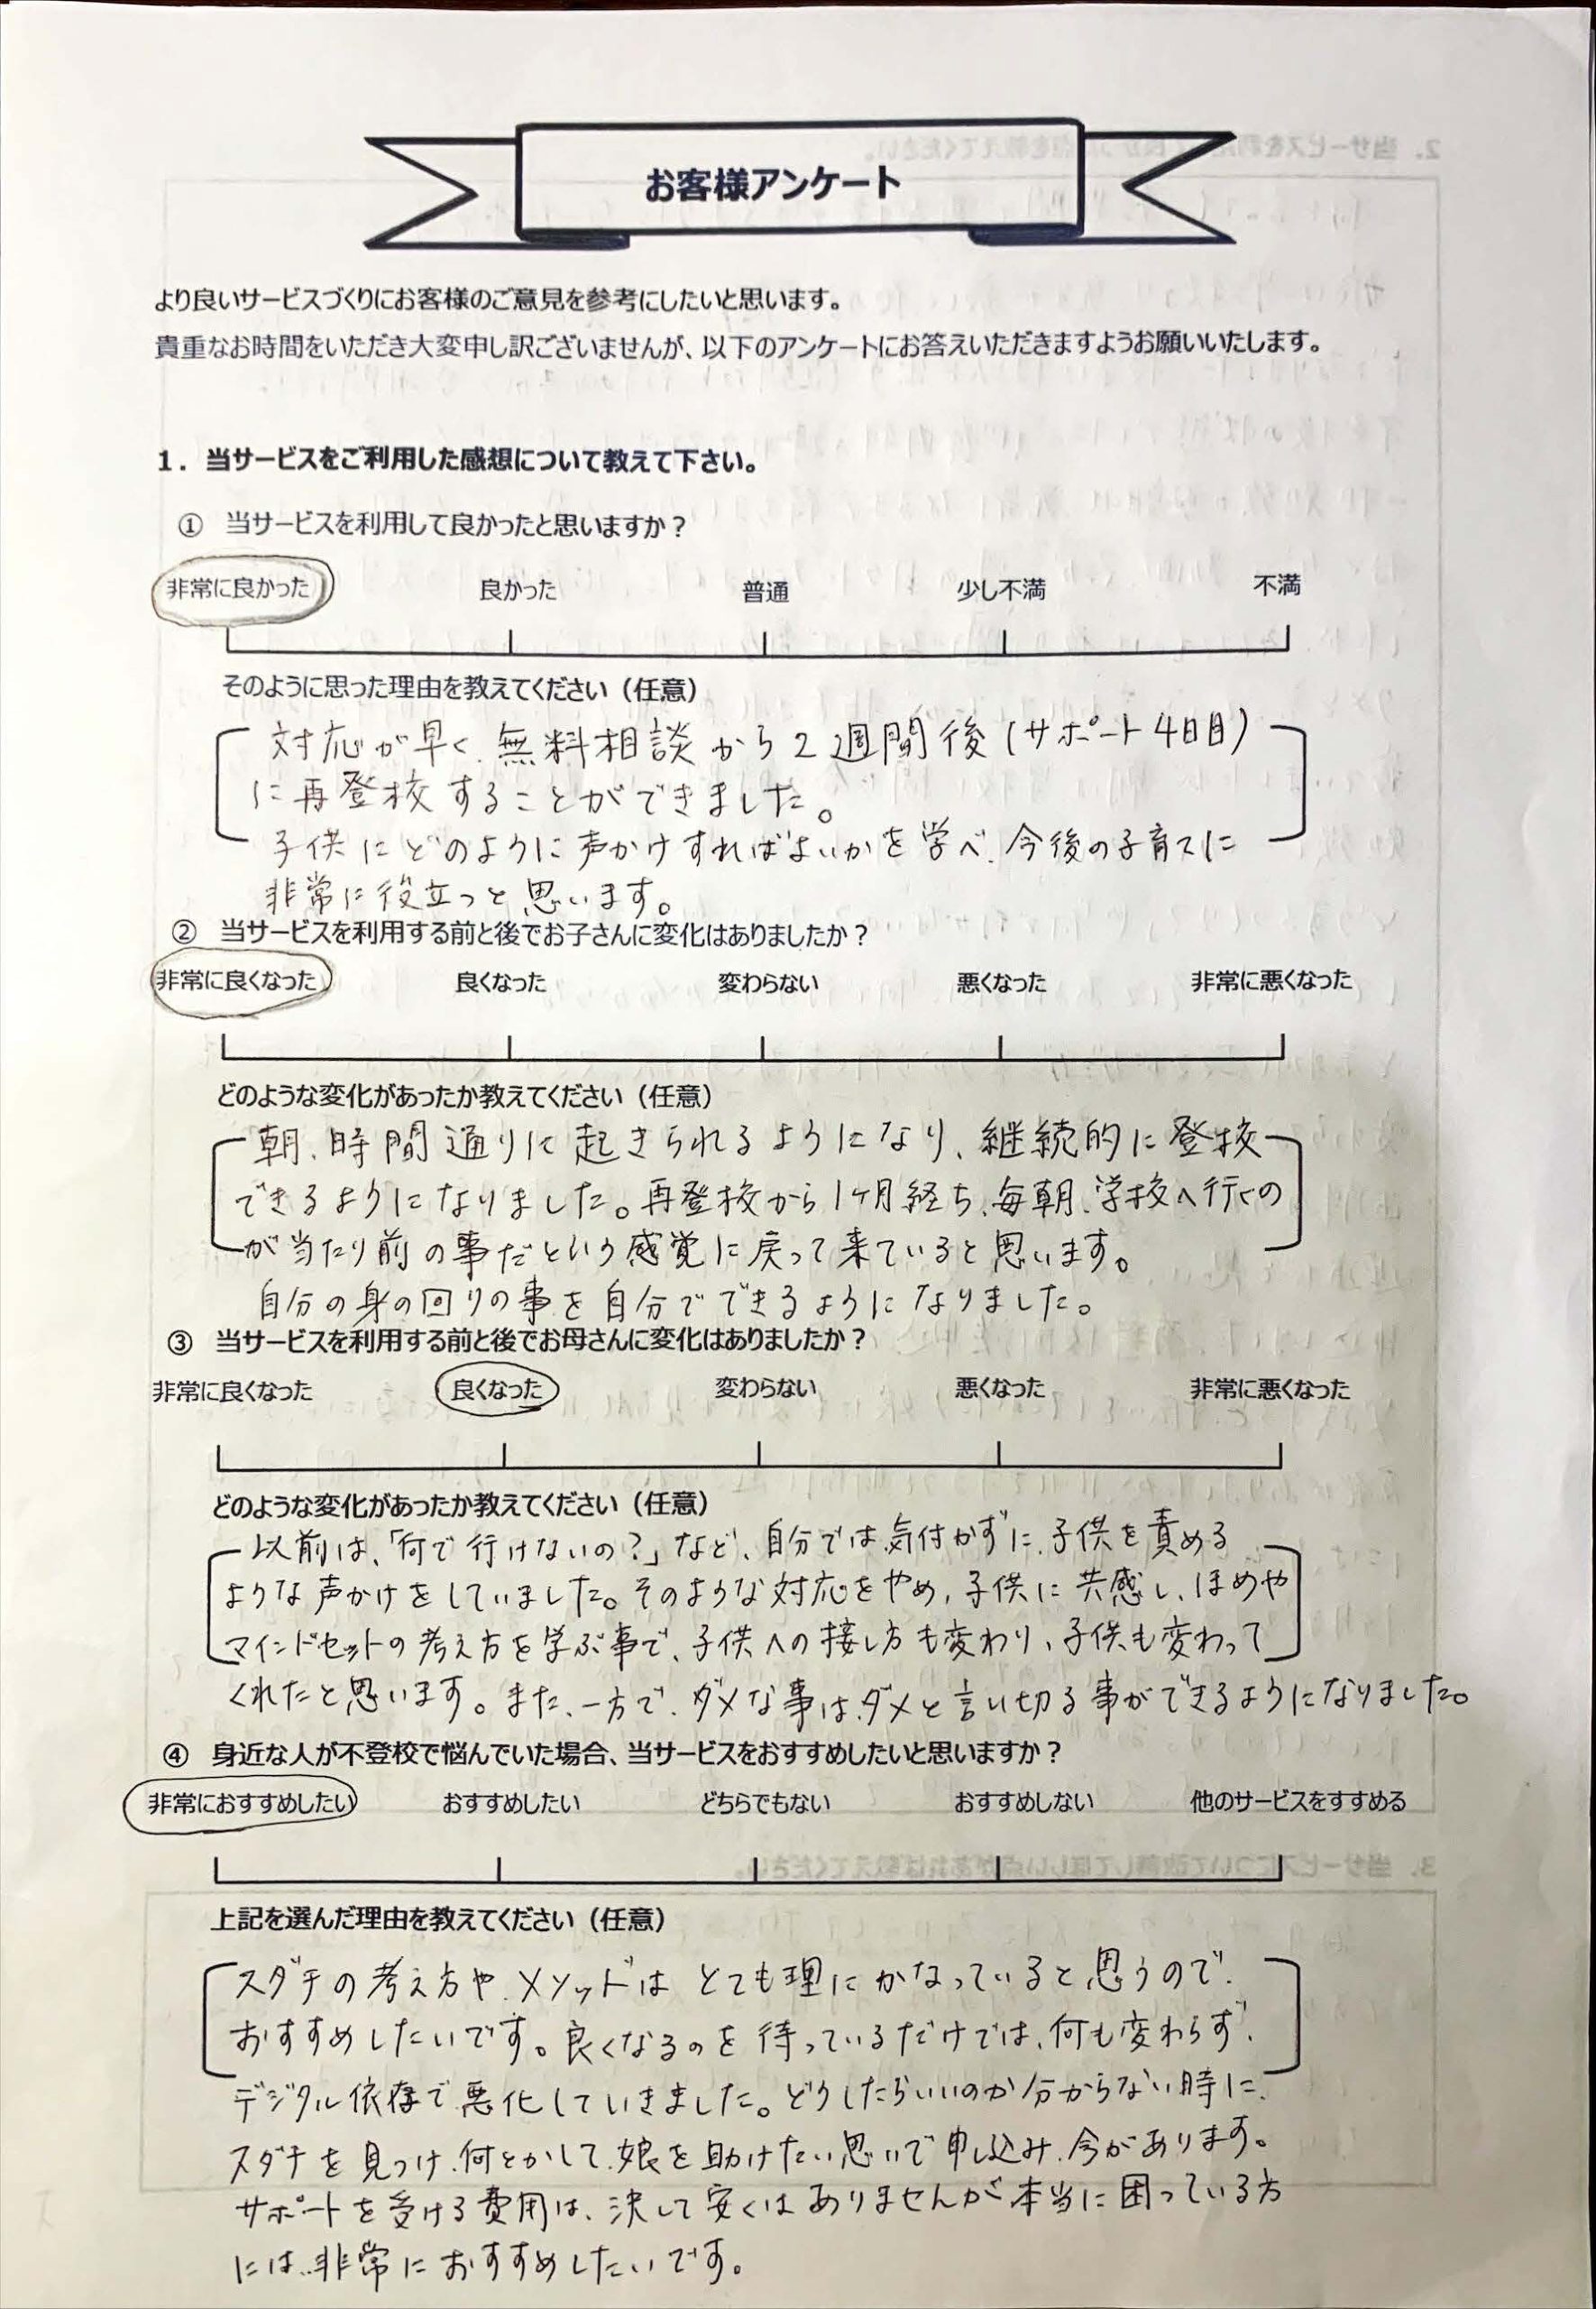 お客様アンケート
より良いサービスづくりにお客様のご意見を参考にしたいと思います。
貴重なお時間をいただき大変申し訳ございませんが、以下のアンケートにお答えいただきますようお願いいたします。
1．当サービスをご利用した感想について教えて下さい。
① 当サービスを利用して良かったと思いますか？
非常に良かった 良かった 普通 少し不満 不満
そのように思った理由を教えてください（任意）
対応が早く、無料相談から2週間後（サポート4日目）
に再登校することができました。
子供にどのように声かけすればよいかを学べ、今後の子育てに
非常に役立つと思います。
② 当サービスを利用する前と後でお子さんに変化はありましたか？
非常に良くなった 良くなった 変わらない 悪くなった 非常に悪くなった
どのような変化があったか教えてください（任意）
朝、時間通りに起きられるようになり、継続的に登校
できるようになりました。再登校から1ヶ月経ち、毎朝、学校へ行くの
が当たり前の事だという感覚に戻って来ていると思います。
自分の身の回りの事を自分でできるようになりました。
③ 当サービスを利用する前と後でお母さんに変化はありましたか？
非常に良くなった 良くなった 変わらない 悪くなった 非常に悪くなった
どのような変化があったか教えてください（任意）
以前は、「何で行けないの？」など、自分では気付かずに、子供を責める
ような声かけをしていました。そのような対応をやめ、子供に共感し、ほめや
マインドセットの考え方を学ぶ事で、子供への接し方も変わり、子供も変わって
くれたと思います。また、一方で、ダメな事は、ダメと言い切る事ができるようになりました。
④ 身近な人が不登校で悩んでいた場合、当サービスをおすすめしたいと思いますか？
非常におすすめしたい おすすめしたい どちらでもない おすすめしない 他のサービスをすすめる
上記を選んだ理由を教えてください（任意）
スダチの考え方や、メソッドは とても理にかなっていると思うので、
おすすめしたいです。良くなるのを待っているだけでは、何も変わらず、
デジタル依存で悪化していきました。どうしたらいいのか分からない時に、
スダチを見つけ、何とかして、娘を助けたい思いで申し込み、今があります。
サポートを受ける費用は、決して安くはありませんが本当に困っている方
には、非常におすすめしたいです。